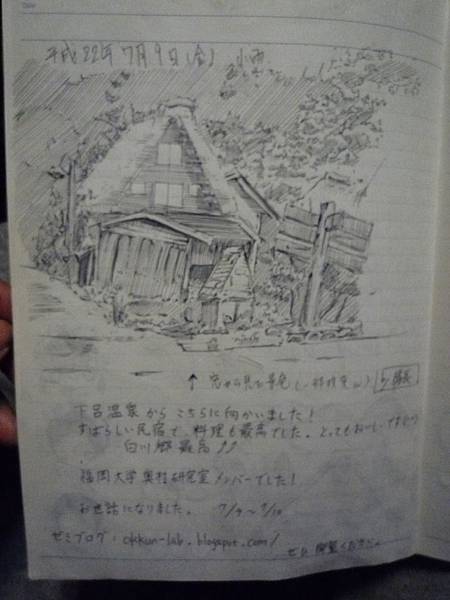 平成22年7月9日(金) 小雨
↑ 窓から見た景色
下呂温泉からこちらに向かいました!
すばらしい民宿で、料理も最高でした。とってもおいしい
白川郷最高!!
福岡大学 奥村研究室メンバーでした!
お世話になりました。 7/9〜7/10
ゼミブログ: okkun-lab.blogspot.com/
ぜひ 閲覧ください